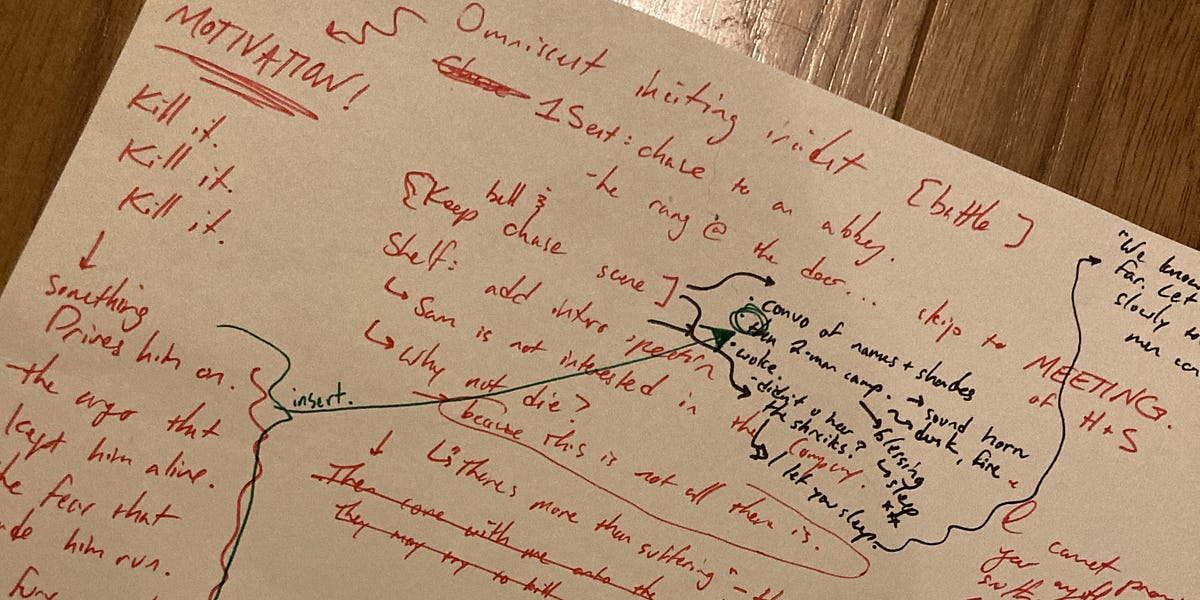 MOTIVATION!
Kill it.
Kill it.
Kill it.
something
Drives him on.
the
that
kept him alive.
the fear that
him run.
Omniscent inciting incident [battle]
1 Sent: chase to an abbey.
-he rang @ the door... skip to MEETING
bell &
of H+S
[Keep chase scene]
Shelf: add intro spection
↳ Sam is not interested in the Company.
↳ Why not die?
because this is not all there is.
↳ "There's more than suffering" - th
Then come with me onto the
they may try to
insert.
• convo of names + shades
• then 2-man camp. → sound horn
dusk, fire
• woke. → blessing
-didn't u hear ↳ sleep
the shreiks? **
↳ I let you sleep.
"We know
far. Let
slowly to
men
I cannot prom
you